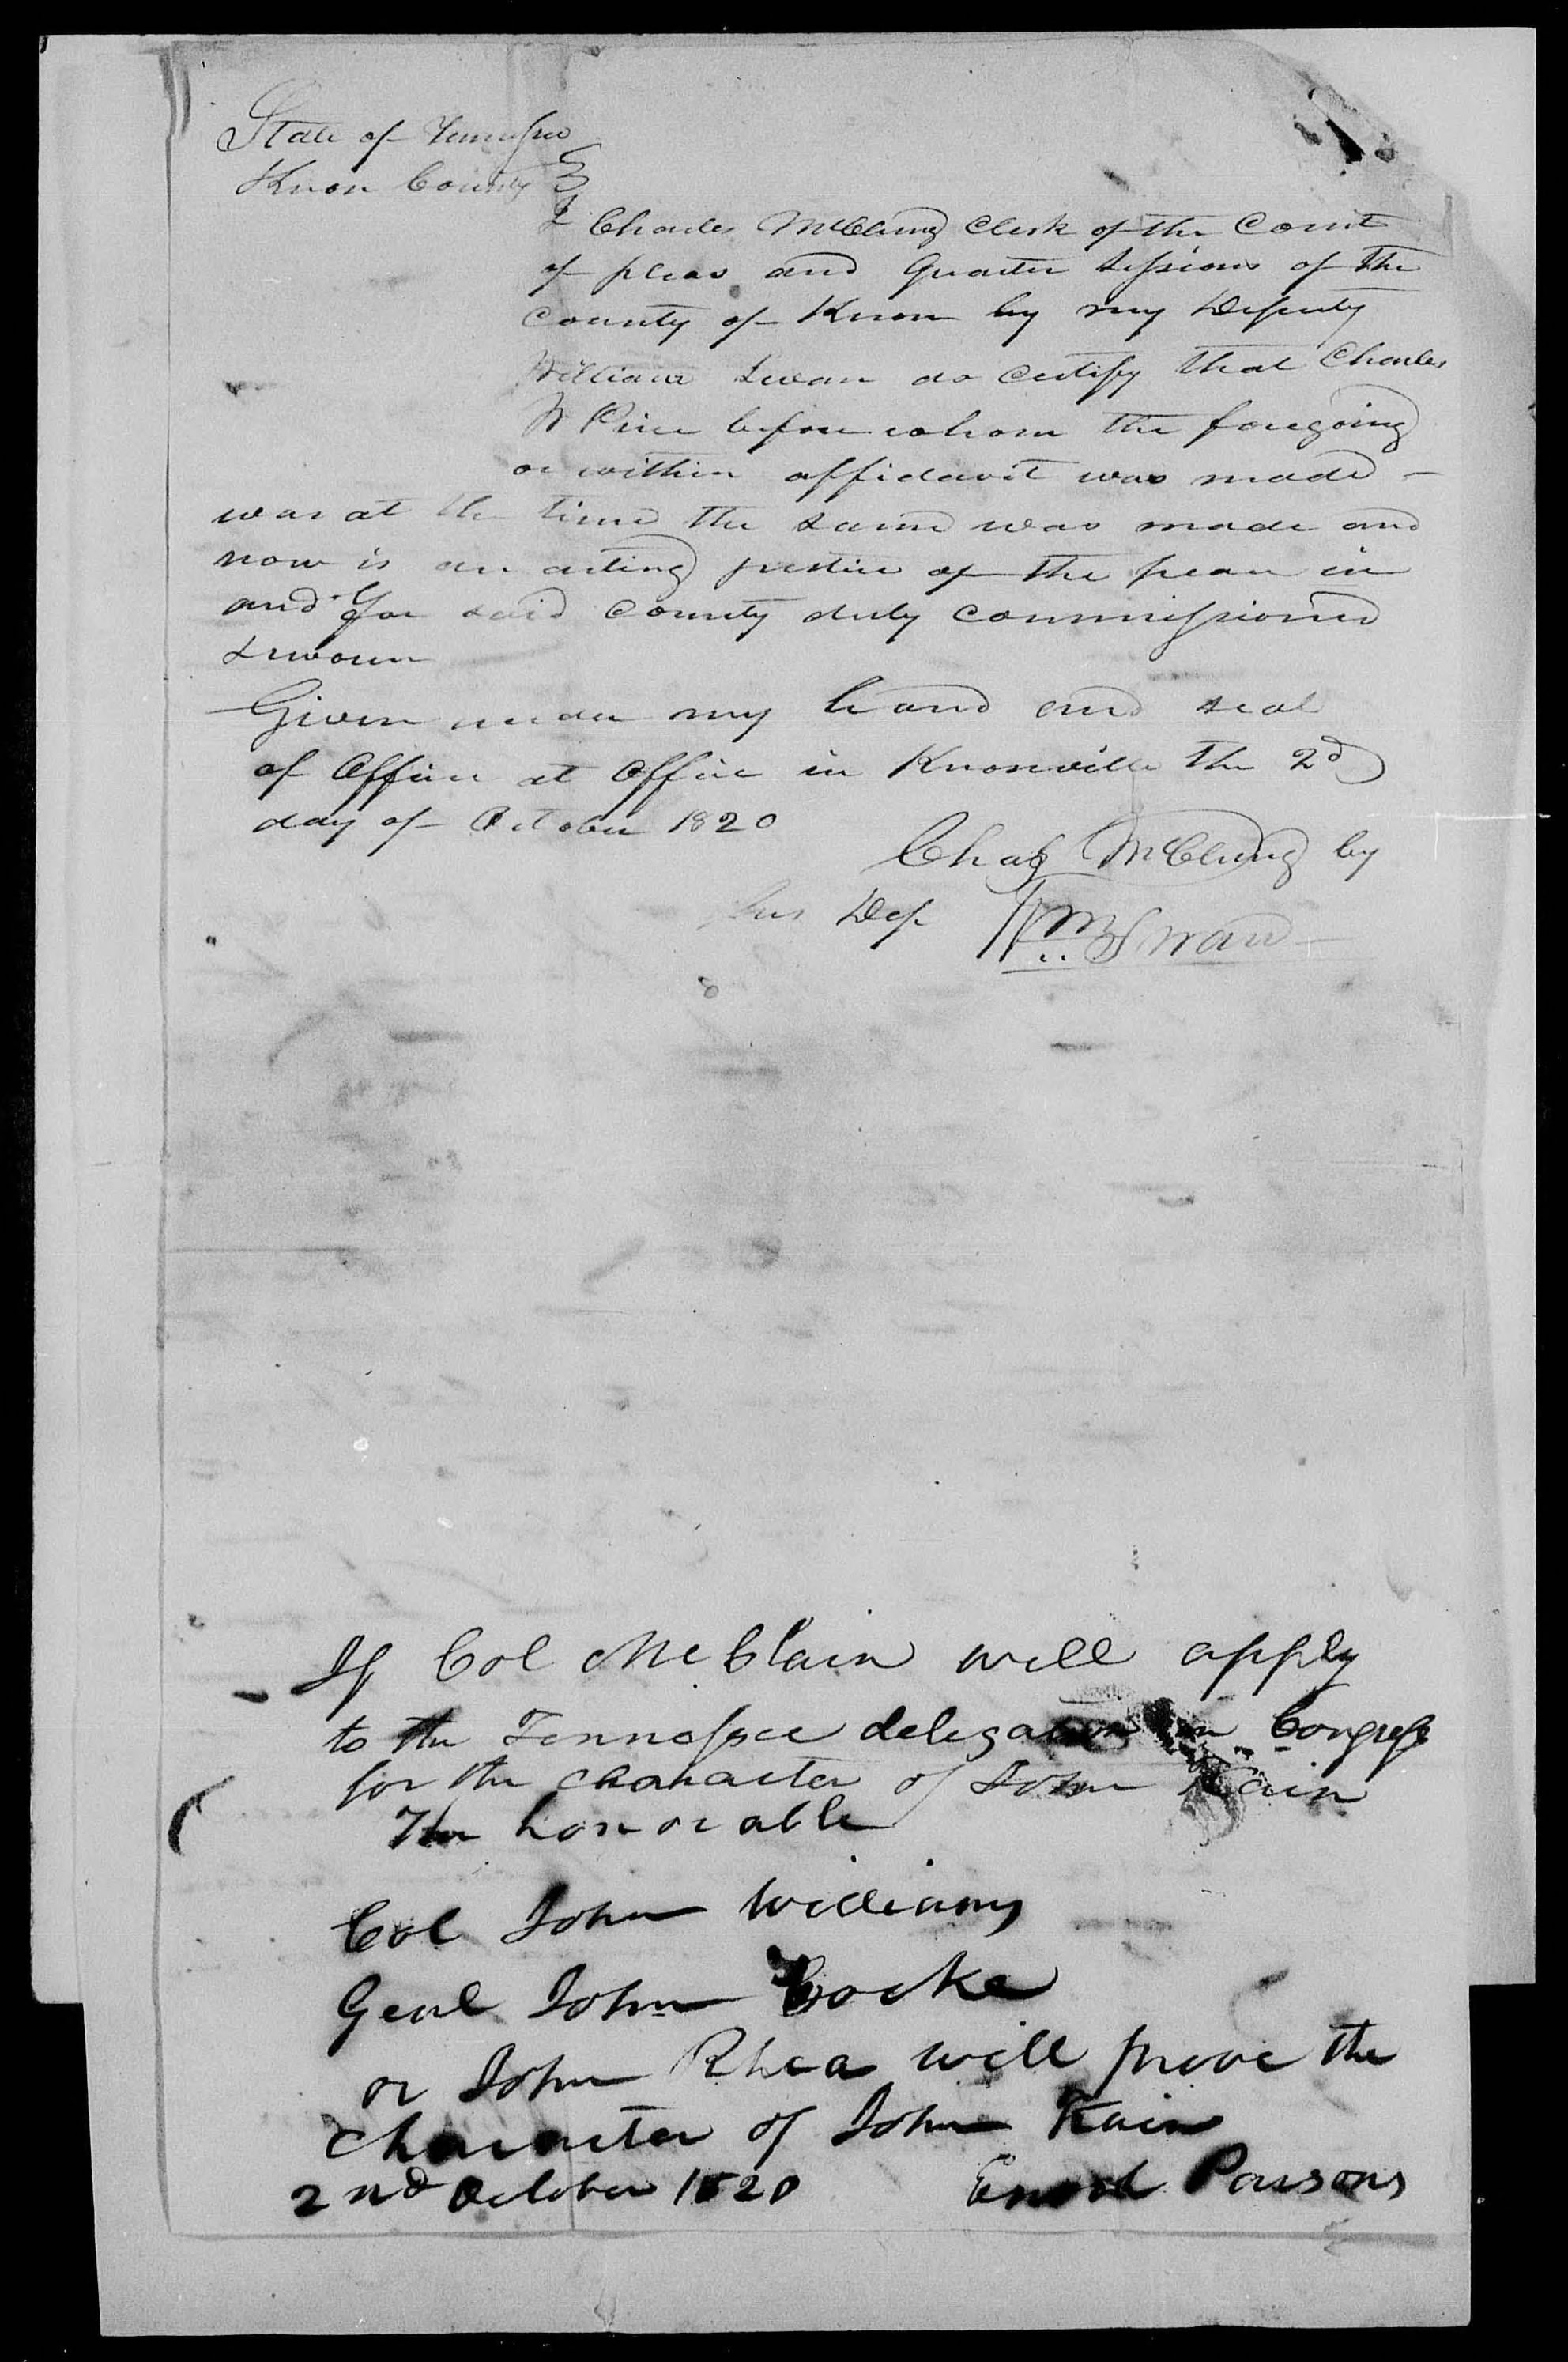 State of Tennessee
Knox County
I Charles McClung Clerk of the Court
of pleas and Quarter Sessions of the
County of Knox by my Deputy
William Swan do Certify that Charles
before whom the foregoing
or within affidavit was made -
was at the time the same was made and
now is an acting justice of the peace in
and for said County duly commissioned
& sworn
Given under my hand and seal
of Office at Office in Knoxville the 2d
day of October 1820
Chas McClung by
his Dep Wm Swan
If Col McClain will apply
to the Tennessee delegation in Congress
for the character of John Kain
The honorable
Col John Williams
Genl John Cocke
or John Rhea will prove the
character of John Kain
2nd October 1820 Enoch Parsons